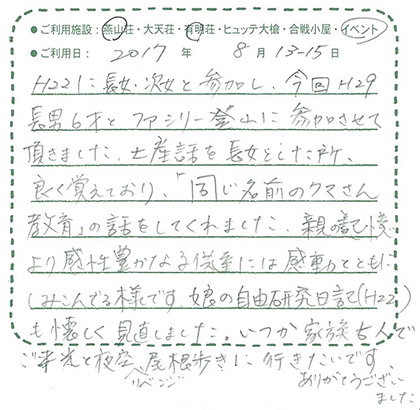 ●ご利用施設：燕山荘・大天荘・有明荘・ヒュッテ大槍・合戦小屋・イベント
●ご利用日： 2017 年 8 月 13-15 日
H22に長女・次女と参加し、今回H29
長男6才とファミリー登山に参加させて
頂きました。土産話を長女とした所、
良く覚えており、「同じ名前のクマさん
教育」の話をしてくれました。親の記憶
より感性豊かな子供達には感動とともに
しみこんでる様です。娘の自由研究日記(H22)
も懐しく見直しました。いつか家族5人で
ご来光と夜空、尾根歩きに行きたいです
リベンジ
ありがとうござい
ました